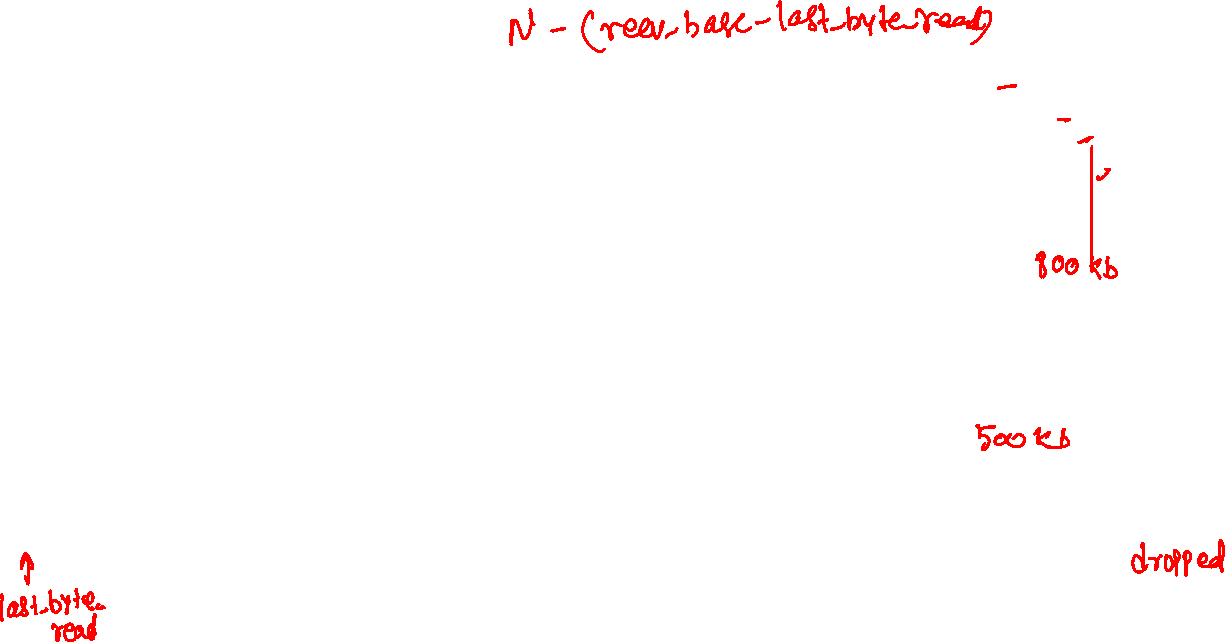 N - (recv_base - last_byte_read)
800 kb
500 kb
dropped
last_byte_
read